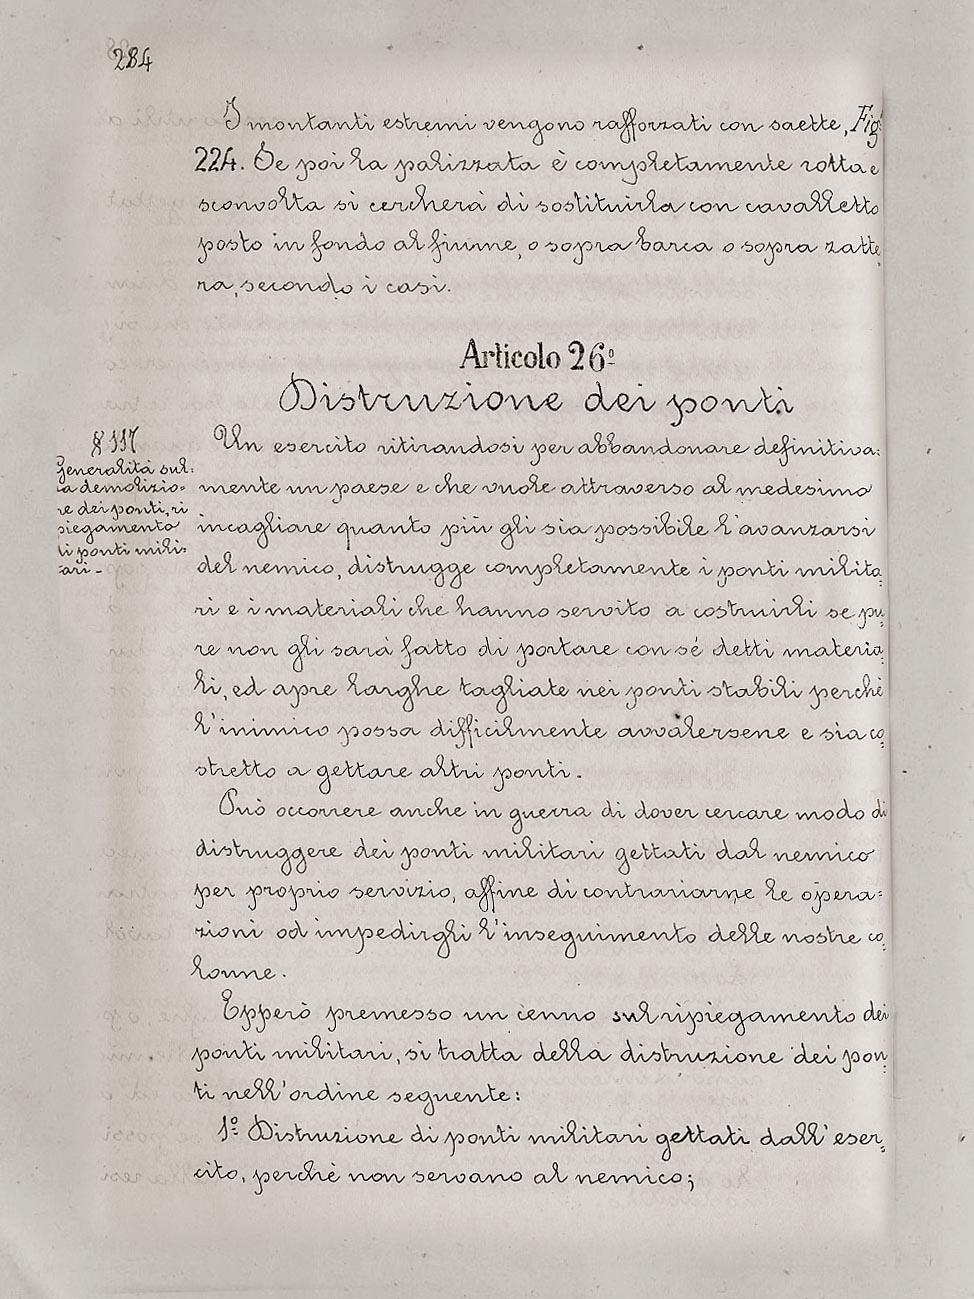 284
I montanti estremi vengono rafforzati con saette, Fig.
224. Se poi la palizzata è completamente rotta e
sconvolta si cercherà di sostituirla con cavalletto
posto in fondo al fiume, o sopra barca o sopra zatte
ra, secondo i casi.
Articolo 26º
Distruzione dei ponti
§ 117
Generalità sul:
la demolizio=
ne dei ponti, ri
piegamento
di ponti mili:
tari -
Un esercito ritirandosi per abbandonare definitiva:
mente un paese e che vuole attraverso al medesimo
incagliare quanto più gli sia possibile l'avanzarsi
del nemico, distrugge completamente i ponti milita
ri e i materiali che hanno servito a costruirli se pu:
re non gli sarà fatto di portare con sé detti materia:
li, ed apre larghe tagliate nei ponti stabili perchè
l'inimico possa difficilmente avvalersene e sia co:
stretto a gettare altri ponti.
Può occorrere anche in guerra di dover cercare modo di
distruggere dei ponti militari gettati dal nemico
per proprio servizio, affine di contrariarne le opera=
zioni od impedirgli l'inseguimento delle nostre co
lonne.
Epperò premesso un cenno sul ripiegamento dei
ponti militari, si tratta della distruzione dei pon
ti nell'ordine seguente:
1º Distruzione di ponti militari gettati dall'eser:
cito, perchè non servano al nemico;